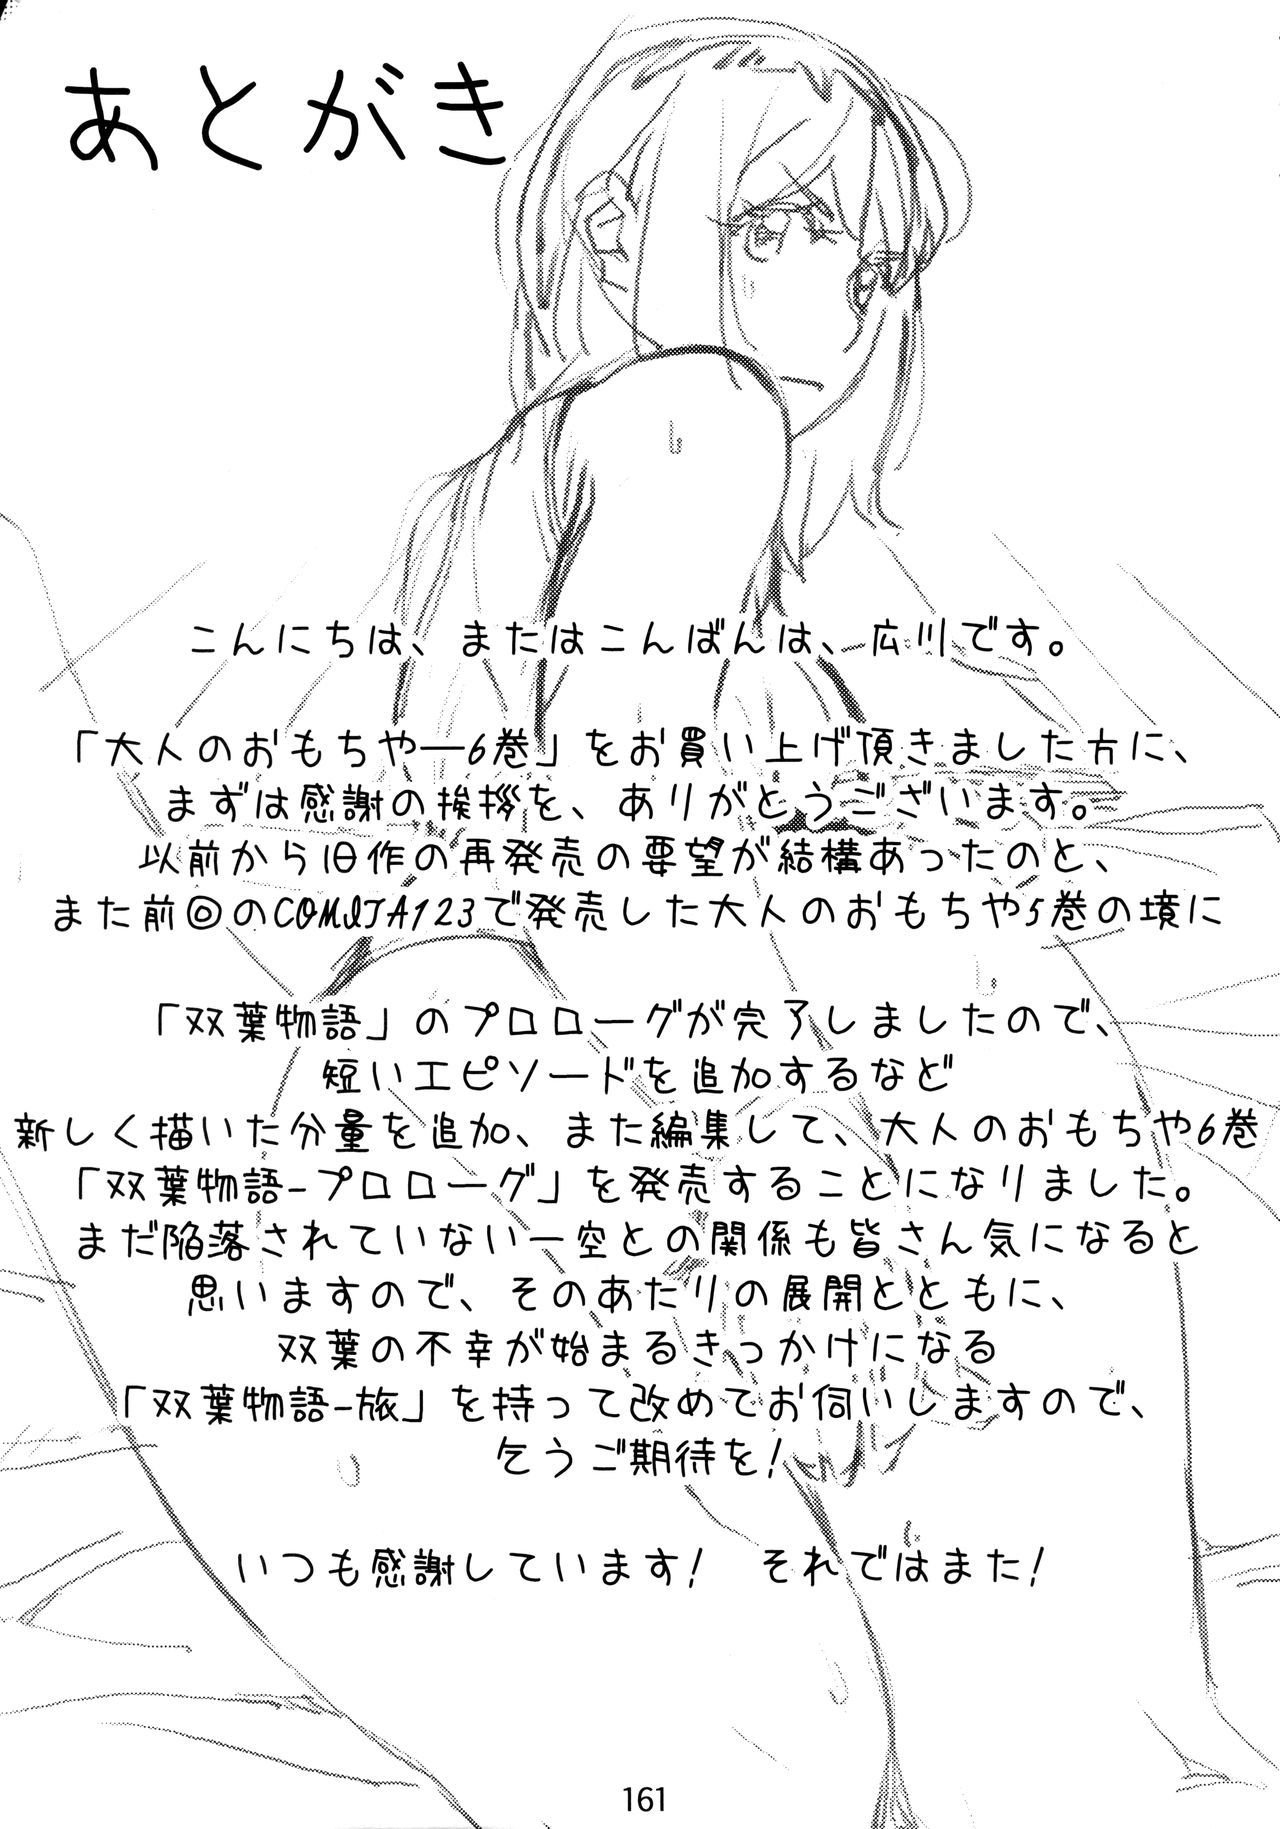 あとがき
こんにちは、またはこんばんは、広川です。
「大人のおもちや―6巻」をお買い上げ頂きました方に、
まずは感謝の挨拶を、ありがとうございます。
以前から旧作の再発売の要望が結構あったのと、
また前◎のCOMITIA123で発売した大人のおもちや5巻の境に
「双葉物語」のプロローグが完了しましたので、
短いエピソードを追加するなど
新しく描いた分量を追加、また編集して、大人のおもちや6巻
「双葉物語-プロローグ」を発売することになりました。
まだ陥落されていない一空との関係も皆さん気になると
思いますので、そのあたりの展開とともに、
双葉の不幸が始まるきっかけになる
「双葉物語-旅」を持って改めてお伺いしますので、
乞うご期待を!
いつも感謝しています!　それではまた!
161